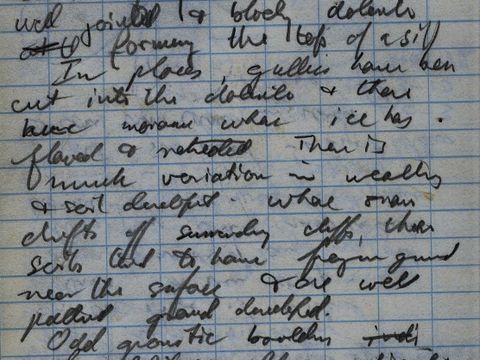 well jointed & blocky dolerite
forming the top of a sill
In places, gullies have been
cut into the dolerite & these
have moraine where ice has
flowed & retreated. There is
much variation in weathering
& soil development. where
drifts of surrounding cliffs, these
soils tend to have frozen ground
near the surface & are well
patterned ground developed.
Odd granitic boulders